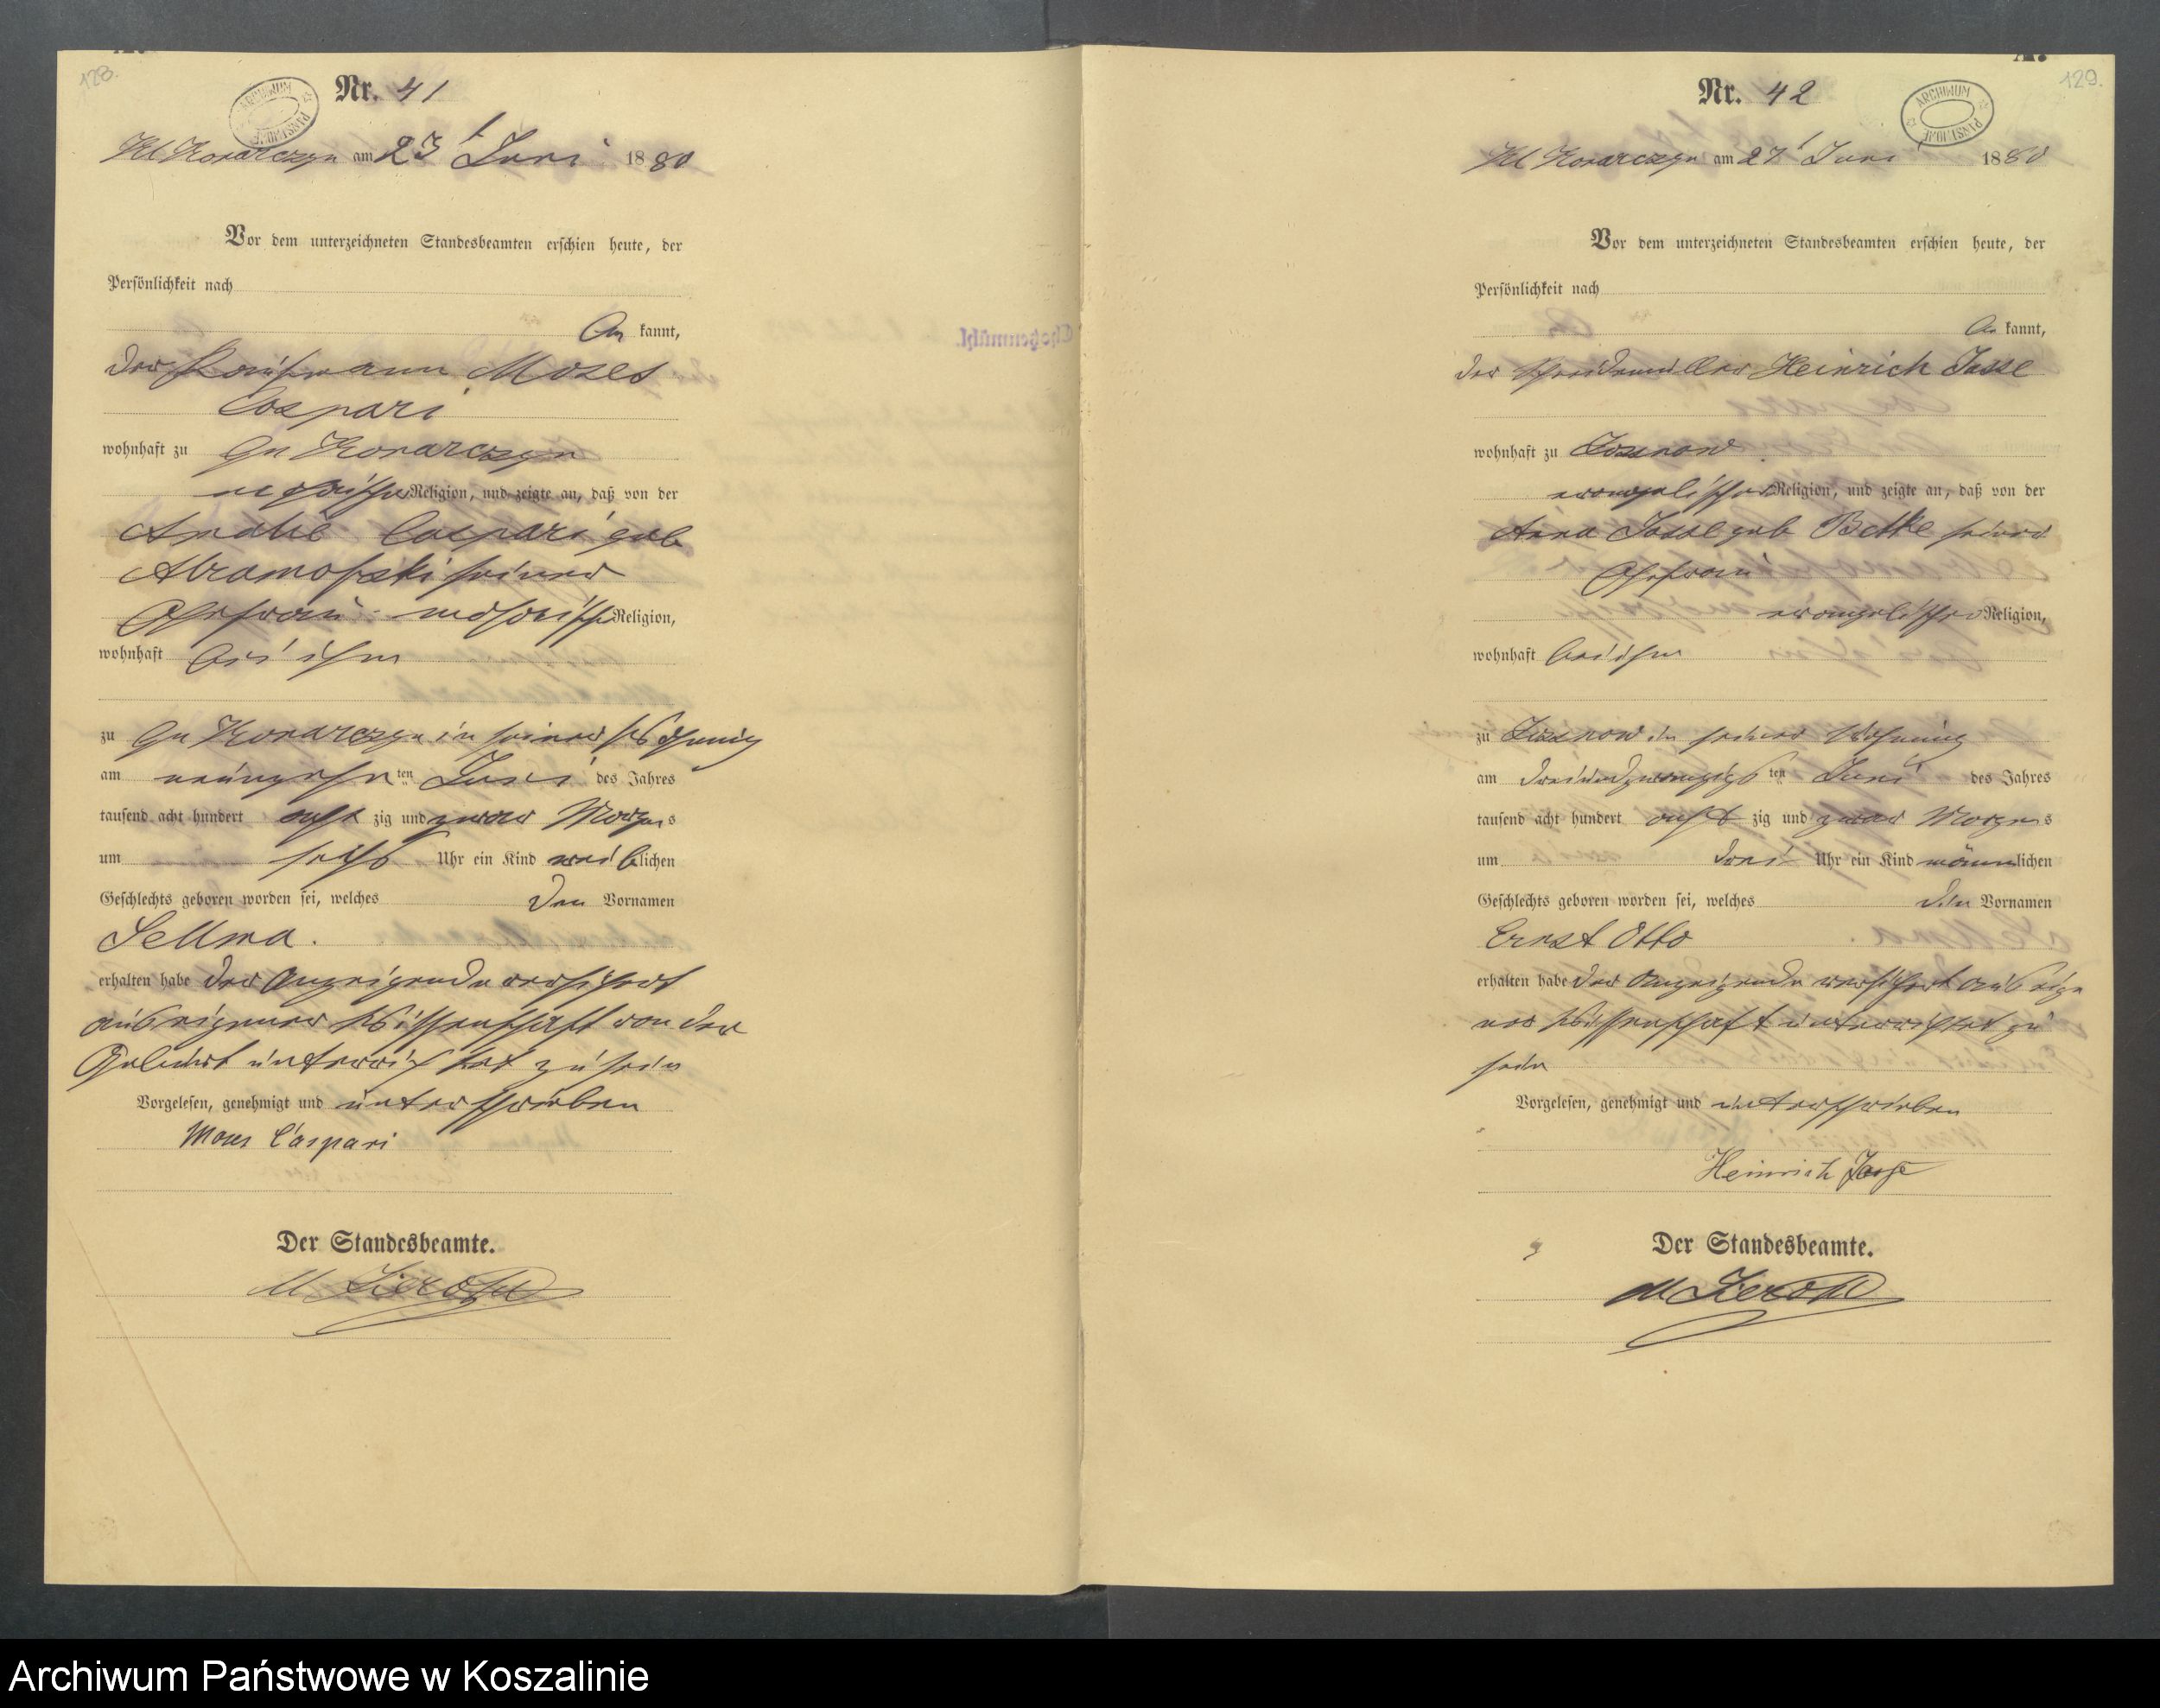 128.
ARCHIWUM PAŃSTWOWE
Nr. 41
Kl Konarczyn am 23t Juni 1880
Vor dem unterzeichneten Standesbeamten erschien heute, der
Persönlichkeit nach
be kannt,
der Kaufmann Moses
Caspari
wohnhaft zu Gr Konarczyn
mosaischer Religion, und zeigte an, daß von der
Amalie Caspari geb
Abramofski seiner
Ehefrau mosaischer Religion,
wohnhaft bei ihm
zu Gr Konarczyn in seiner Wohnung
am neunzehn ten Juni des Jahres
tausend acht hundert acht zig und zwar Morgens
um sechs Uhr ein Kind weiblichen
Geschlechts geboren worden sei, welches den Vornamen
Sellma.
erhalten habe der Anzeigende versichert
aus eigener Wissenschaft von der
Geburt unterrichtet zu sein
Vorgelesen, genehmigt und unterschrieben
Moses Caspari
Der Standesbeamte.
129.
ARCHIWUM PAŃSTWOWE
Nr. 42
Kl Konarczyn am 27t Juni 1880
Vor dem unterzeichneten Standesbeamten erschien heute, der
Persönlichkeit nach
be kannt,
der Schneidemüller Heinrich Jasse
wohnhaft zu
evangelischer Religion, und zeigte an, daß von der
Anna Jasse geb Bethke seiner
Ehefrau
evangelischer Religion,
wohnhaft bei ihm
zu in seiner Wohnung
am dreiundzwanzigs ten Juni des Jahres
tausend acht hundert acht zig und zwar Morgens
um drei Uhr ein Kind männlichen
Geschlechts geboren worden sei, welches den Vornamen
Ernst Otto
erhalten habe der Anzeigende versichert aus eige
ner Wissenschaft unterrichtet zu
sein
Vorgelesen, genehmigt und unterschrieben
Heinrich Jasse
Der Standesbeamte.
Archiwum Państwowe w Koszalinie